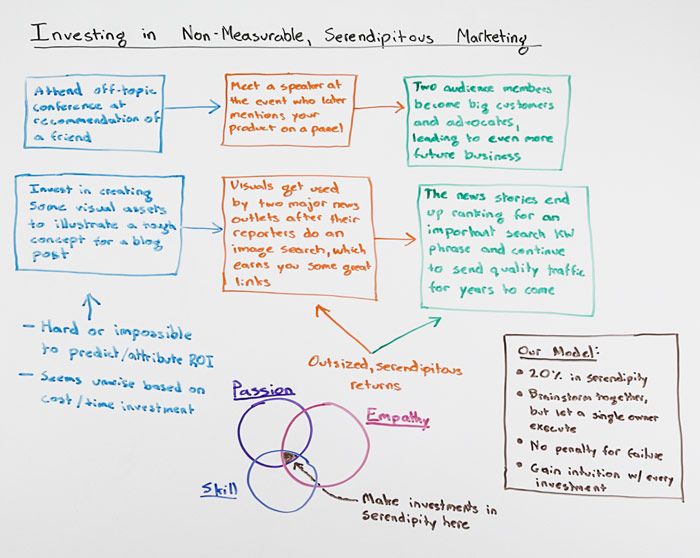 Investing in Non-Measurable, Serendipitous Marketing
Attend off-topic
conference at
recommendation of
a friend
Meet a speaker at
the event who later
mentions your
product on a panel
Two audience members
become big customers
and advocates,
leading to even more
future business
Invest in creating
some visual assets
to illustrate a tough
concept for a blog
post
Visuals get used
by two major news
outlets after their
reporters do an
image search, which
earns you some great
links
The news stories end
up ranking for an
important search KW
phrase and continue
to send quality traffic
for years to come
- Hard or impossible
to predict/attribute ROI
- Seems unwise based on
cost/time investment
Outsized, serendipitous
returns
Passion
Empathy
Skill
Make investments in
serendipity here
Our Model:
• 20% in serendipity
• Brainstorm together,
but let a single owner
execute
• No penalty for failure
• Gain intuition w/ every
investment